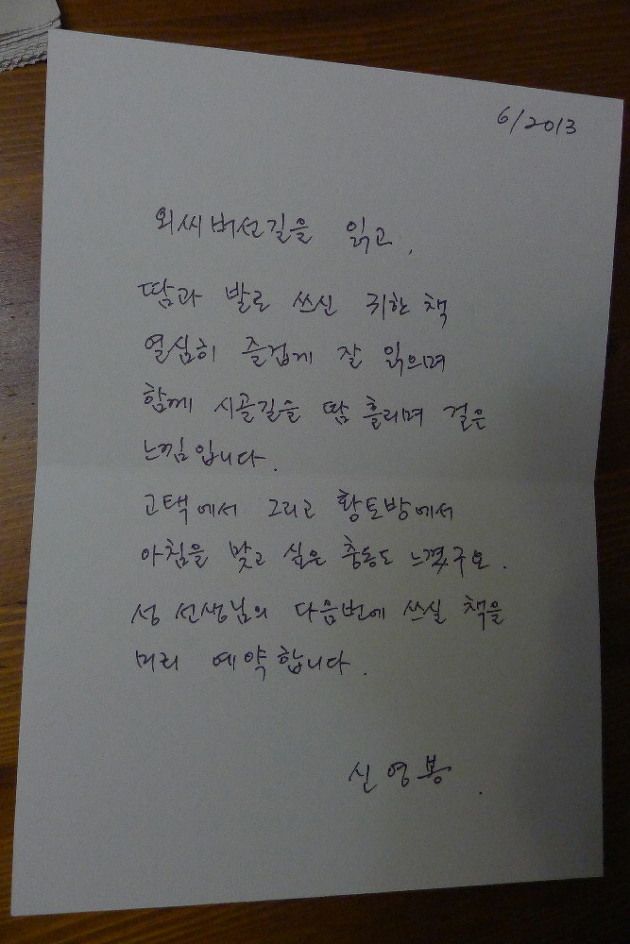 6/2013
외씨버선길을 읽고,
땀과 발로 쓰신 귀한 책
열심히 즐겁게 잘 읽으며
함께 시골길을 땀 흘리며 걸은
느낌입니다.
고택에서 그리고 황토방에서
아침을 맞고 싶은 충동도 느꼈구요.
성 선생님의 다음번에 쓰실 책을
미리 예약합니다.
신영봉.